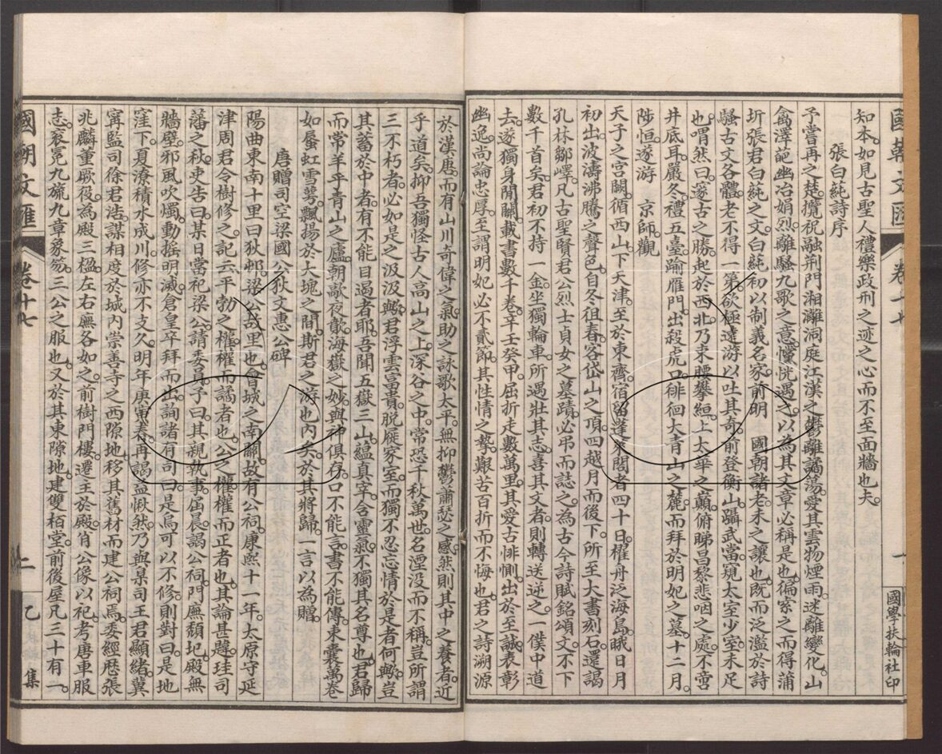 國朝文匯 卷十七
一 國學扶輪社印
知本如見古聖人禮樂政刑之迹之心而不至面牆也夫
張白蒓詩序
予嘗再之楚攬祝融荆門湘灕洞庭江漢之鬱離譎蕩愛其雲物煙雨迷離變化山
禽澤葩幽冶娟烈離騷九歌之意懭恍遇之以為其文章必稱是也徧索之而得蒲
圻張君白蒓之文白蒓初以制義名家前明 國朝諸老未之讓也既而泛濫於詩
騷古文各體老不得一第欲極遠游以吐其奇前登衡山躡武當窺太室少室未足
也喟然曰邃古之勝起於西北乃束腰攀絙上太華之巔俯睇昌黎悲咽之處不啻
井底耳嚴冬禮五臺踰雁門出殺虎口徘徊大青山之麓而拜於明妃之墓十二月
陟恒遂游 京師觀
天子之宮闕循西山下天津至於東齊宿留蓬萊閣者四十日櫂舟泛海島晱日月
初出波濤沸騰之聲色自冬徂春客岱山之頂四越月而後下所至大書刻石還謁
孔林鄒嶧凡古聖賢君公烈士貞女之墓蹟必弔而誌之為古今詩賦銘頌文不下
數千首矣君初不持一金坐獨輪車所遇壯其志喜其文者則轉送逆之一僕中道
去遂獨身閒關載書數千卷辛壬癸甲屈折走數萬里其愛古悱惻出於至誠表彰
幽逸尚論忠厚至謂明妃必不貳節其性情之摯艱苦百折而不悔也君之詩溯源
於漢唐而有山川奇偉之氣助之詠歌太平無抑鬱蕭瑟之感然則其中之養者近
乎道矣抑吾獨怪古人高山之上深谷之中常恐千秋萬世名湮没而不稱豈所謂
三不朽者必如是之汲汲歟君浮雲富貴脱屣家室而獨不忍忘情於是者何歟豈
其蓄於中者有不能自遏者耶吾聞五嶽三山藴真萃含靈氣不獨其名尊也君歸
而常羊乎青山之廬朝歊夜歔海嶽之妙與神俱存口不能言書不能傳束囊萬卷
如蜃虹雲雩飄揚於大塊之間斯君之游也内矣於其將歸一言以為贈
唐贈司空梁國公狄文惠公碑
陽曲東南十里曰狄邨梁公故里也會城之南關故有公祠康熙十一年太原守延
津周君令樹修之記云平勃之權權而譎者也公之權權而正者也其論甚韙珪司
藩之秋吏告曰某日當祀梁公請委員予曰其親執事届晨謁公祠門廡頽地殿無
牆壁邪風吹燭動搖明滅倉皇卒拜而出詢諸有司曰是烏可以不修則對曰是地
窪下夏潦積水成川修亦不支久明年庚寅春再謁益愀然乃與臬司王君顯緒冀
寧監司徐君浩謀相度於城内崇善寺之西隙地移其舊材而建公祠焉委經歷張
兆麟重厥役為殿三楹左右廡各如之前樹門樓遷主於殿肖公像以祀考唐車服
志衮冕九旒九章象笏三公之服也又於其東隙地建雙栢堂前後屋凡三十有一
國朝文匯 卷十七
十二 乙集